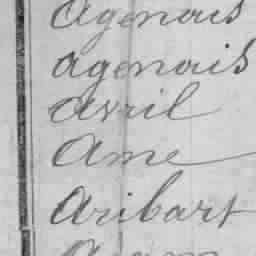 Agenais
agenais
avril
Ame
Aribart